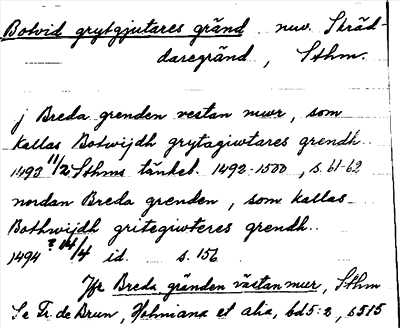 Botvid grytgjutares gränd nuv. Skräd-
daregränd, Sthm.
j Breda grenden vestan mwr, som
kallas Botwijdh grytagiwtares grendh
1493 11/2 Sthms tänkeb. 1492-1500, s. 61-62
nordan Breda grenden, som kallas
Bothwijdh gritegiwteres grendh.
1494 ? 14/4 id. s. 156
Jfr Breda gränden västan mur, Sthm
Se Fr. de Brun, Holmiana et alia, bd 5:2, s 515